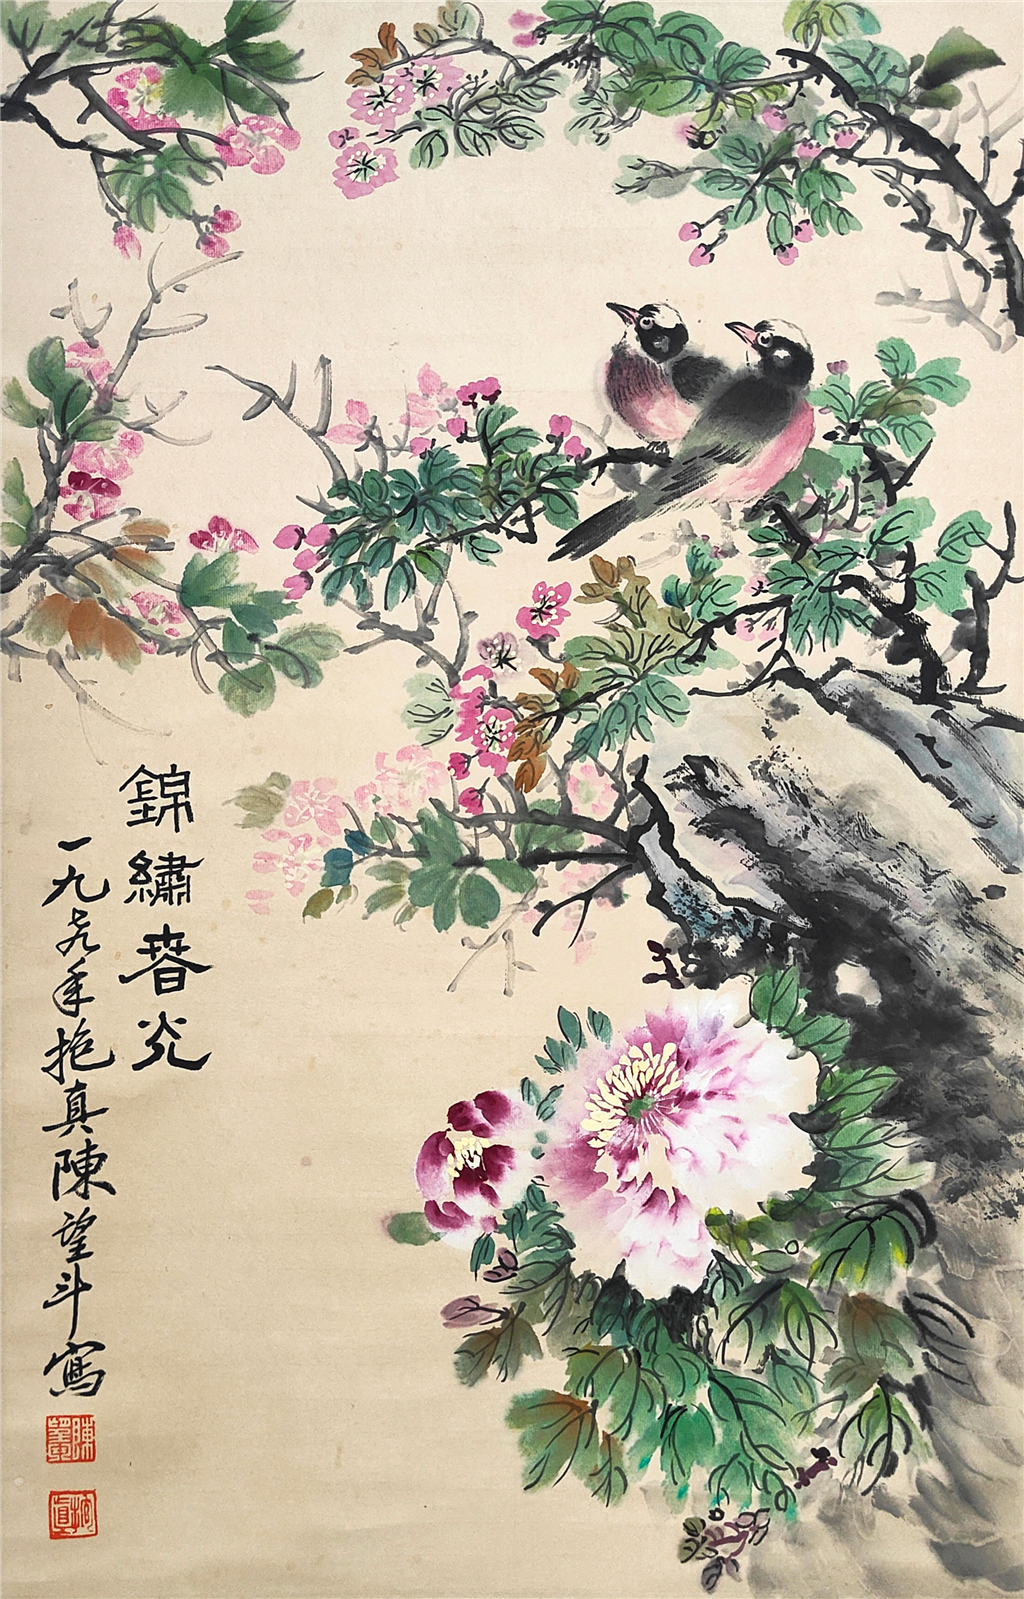 錦繡春光
一九七九年抱真陳望斗寫
陳望斗
抱真